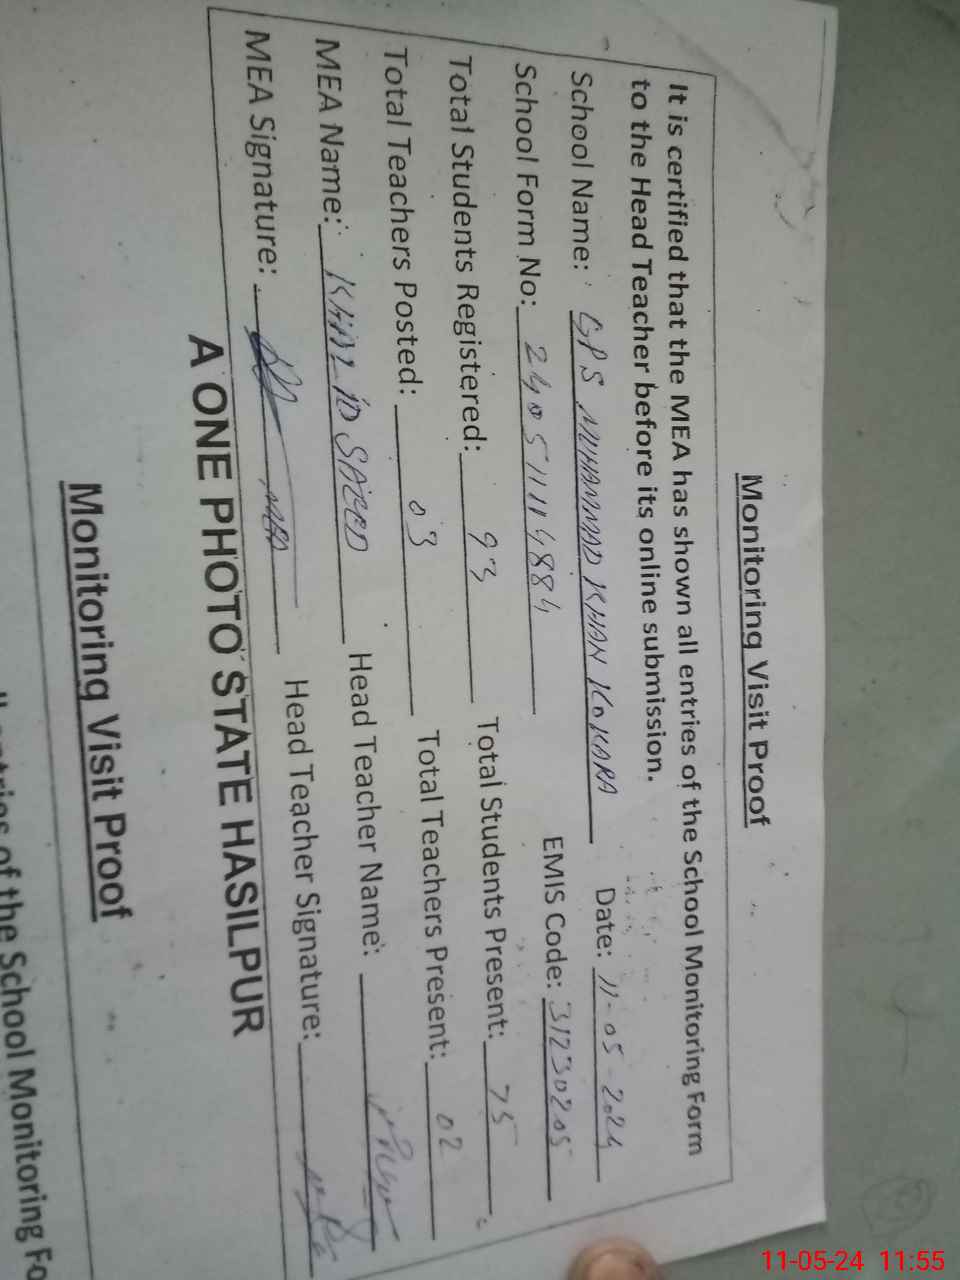 Monitoring Visit Proof
It is certified that the MEA has shown all entries of the School Monitoring Form
to the Head Teacher before its online submission.
School Name: GPS MUHAMMAD KHAN KOKARA Date: 11-05-2024
School Form No: 24051114884 EMIS Code: 31230205
Total Students Registered: 93 Total Students Present: 75
Total Teachers Posted: 03 Total Teachers Present: 02
MEA Name: KHALID SAEED Head Teacher Name:
MEA Signature: MEA Head Teacher Signature:
A ONE PHOTO STATE HASILPUR
Monitoring Visit Proof
entries of the School Monitoring Fo
11-05-24 11:55